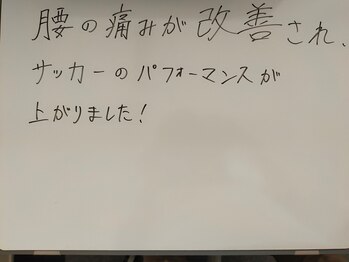 腰の痛みが改善され、
サッカーのパフォーマンスが
上がりました!